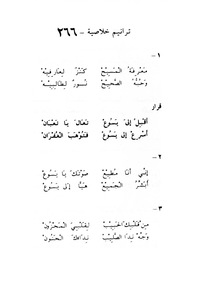 ترانيم خلاصية - ٢٦٦
١ -
مَعرفة المسيح كنزٌ لعارفيه
وحبّه الصحيح نورٌ لطالبيه
قرار
أقبل إلى يسوع تعال يا تعبان
أسرع إلى يسوع فتوهب الغفران
٢ -
إنّي أنا مطيع صوتك يا يسوع
أبشر الجميع هيا إلى يسوع
٣ -
من قلبك الحبيب لقلبي المحزون
وجّه نِدا الصليب نداءك الحنون